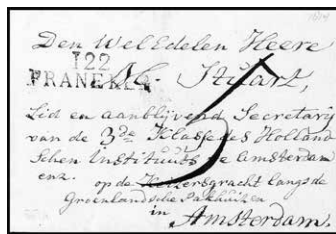 Den Wel Edelen Heere
122
FRANEKER
M. Stuart,
Lid en aanblijvend Secretary
van de 3de Klasse des Holland
schen Instituuts te Amsterdam
enz. op de Keizersgracht langs de
Groenlandsche Pakhuizen
in
Amsterdam.